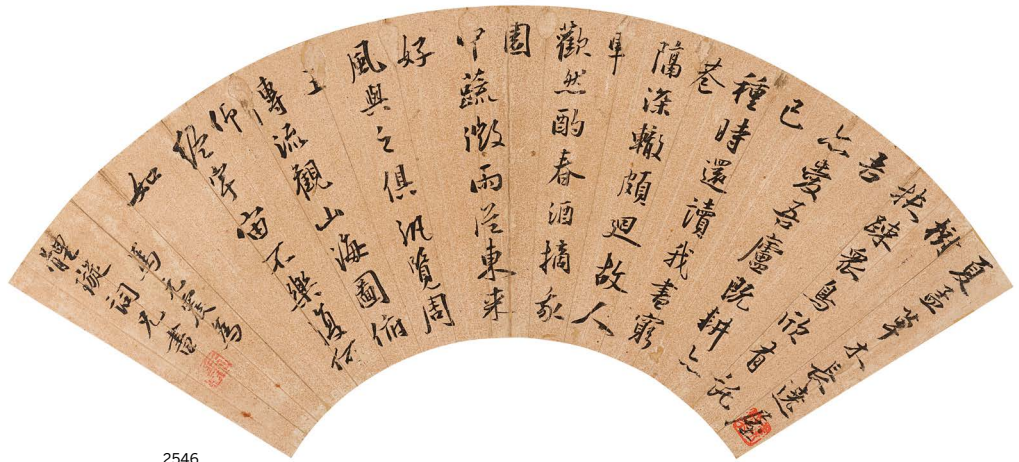 夏孟草木長遶屋
樹
扶踈眾鳥欣有託
吾
亦愛吾廬既耕亦
已
種時還讀我書窮
巷
隔深轍頗迴故人
車
歡然酌春酒摘我
園
中蔬微雨從東来
好
風與之俱汎覽周
王
傳流觀山海圖俯
仰
終宇宙不樂復何
如
馬元震為
體璇詞兄書
2546